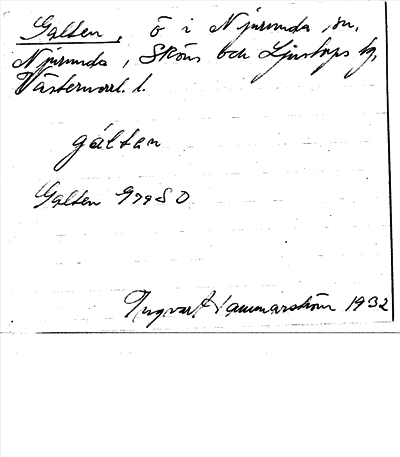 Galten, ö i Njurunda sn,
Njurunda, Sköns och Ljustorps tg,
Västernorrl. l.
gáltan
Galten G79SO
Ingvar Hammarström 1932